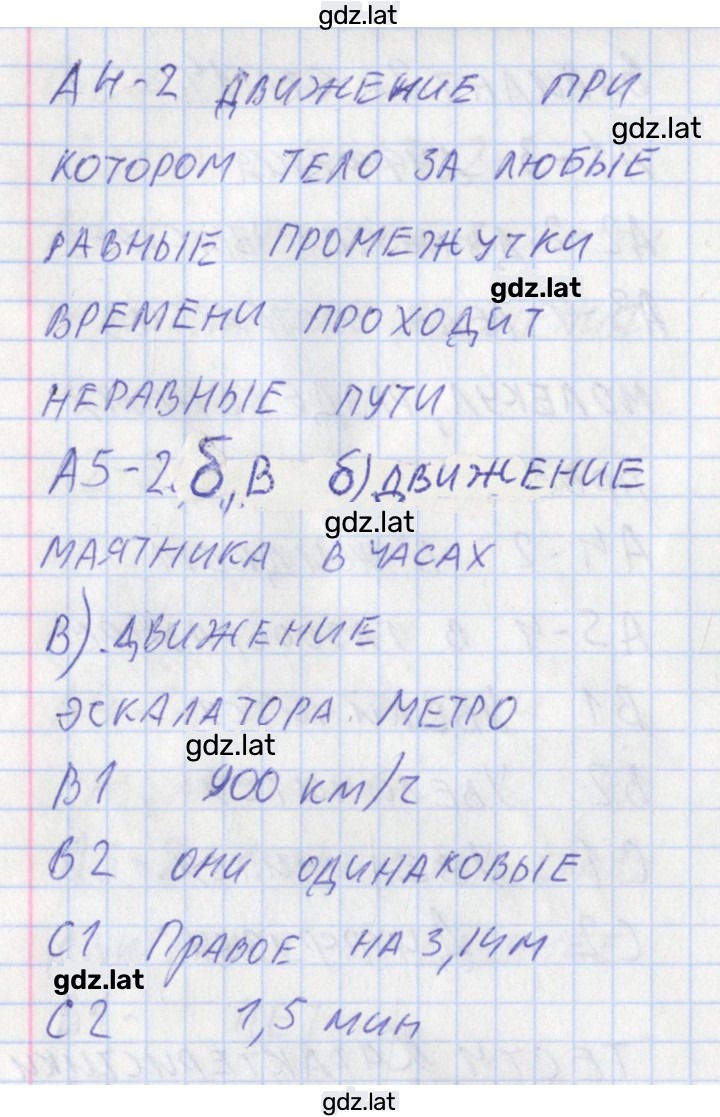 gdz.lat
А4-2 ДВИЖЕНИЕ ПРИ
gdz.lat
КОТОРОМ ТЕЛО ЗА ЛЮБЫЕ
РАВНЫЕ ПРОМЕЖУТКИ
gdz.lat
ВРЕМЕНИ ПРОХОДИТ
НЕРАВНЫЕ ПУТИ
А5-2. б, В б) ДВИЖЕНИЕ
gdz.lat
МАЯТНИКА В ЧАСАХ
В). ДВИЖЕНИЕ
ЭСКАЛАТОРА МЕТРО
gdz.lat
В1 900 км/ч
В2 ОНИ ОДИНАКОВЫЕ
С1 ПРАВОЕ НА 3,14М
gdz.lat
С2 1,5 мин
gdz.lat